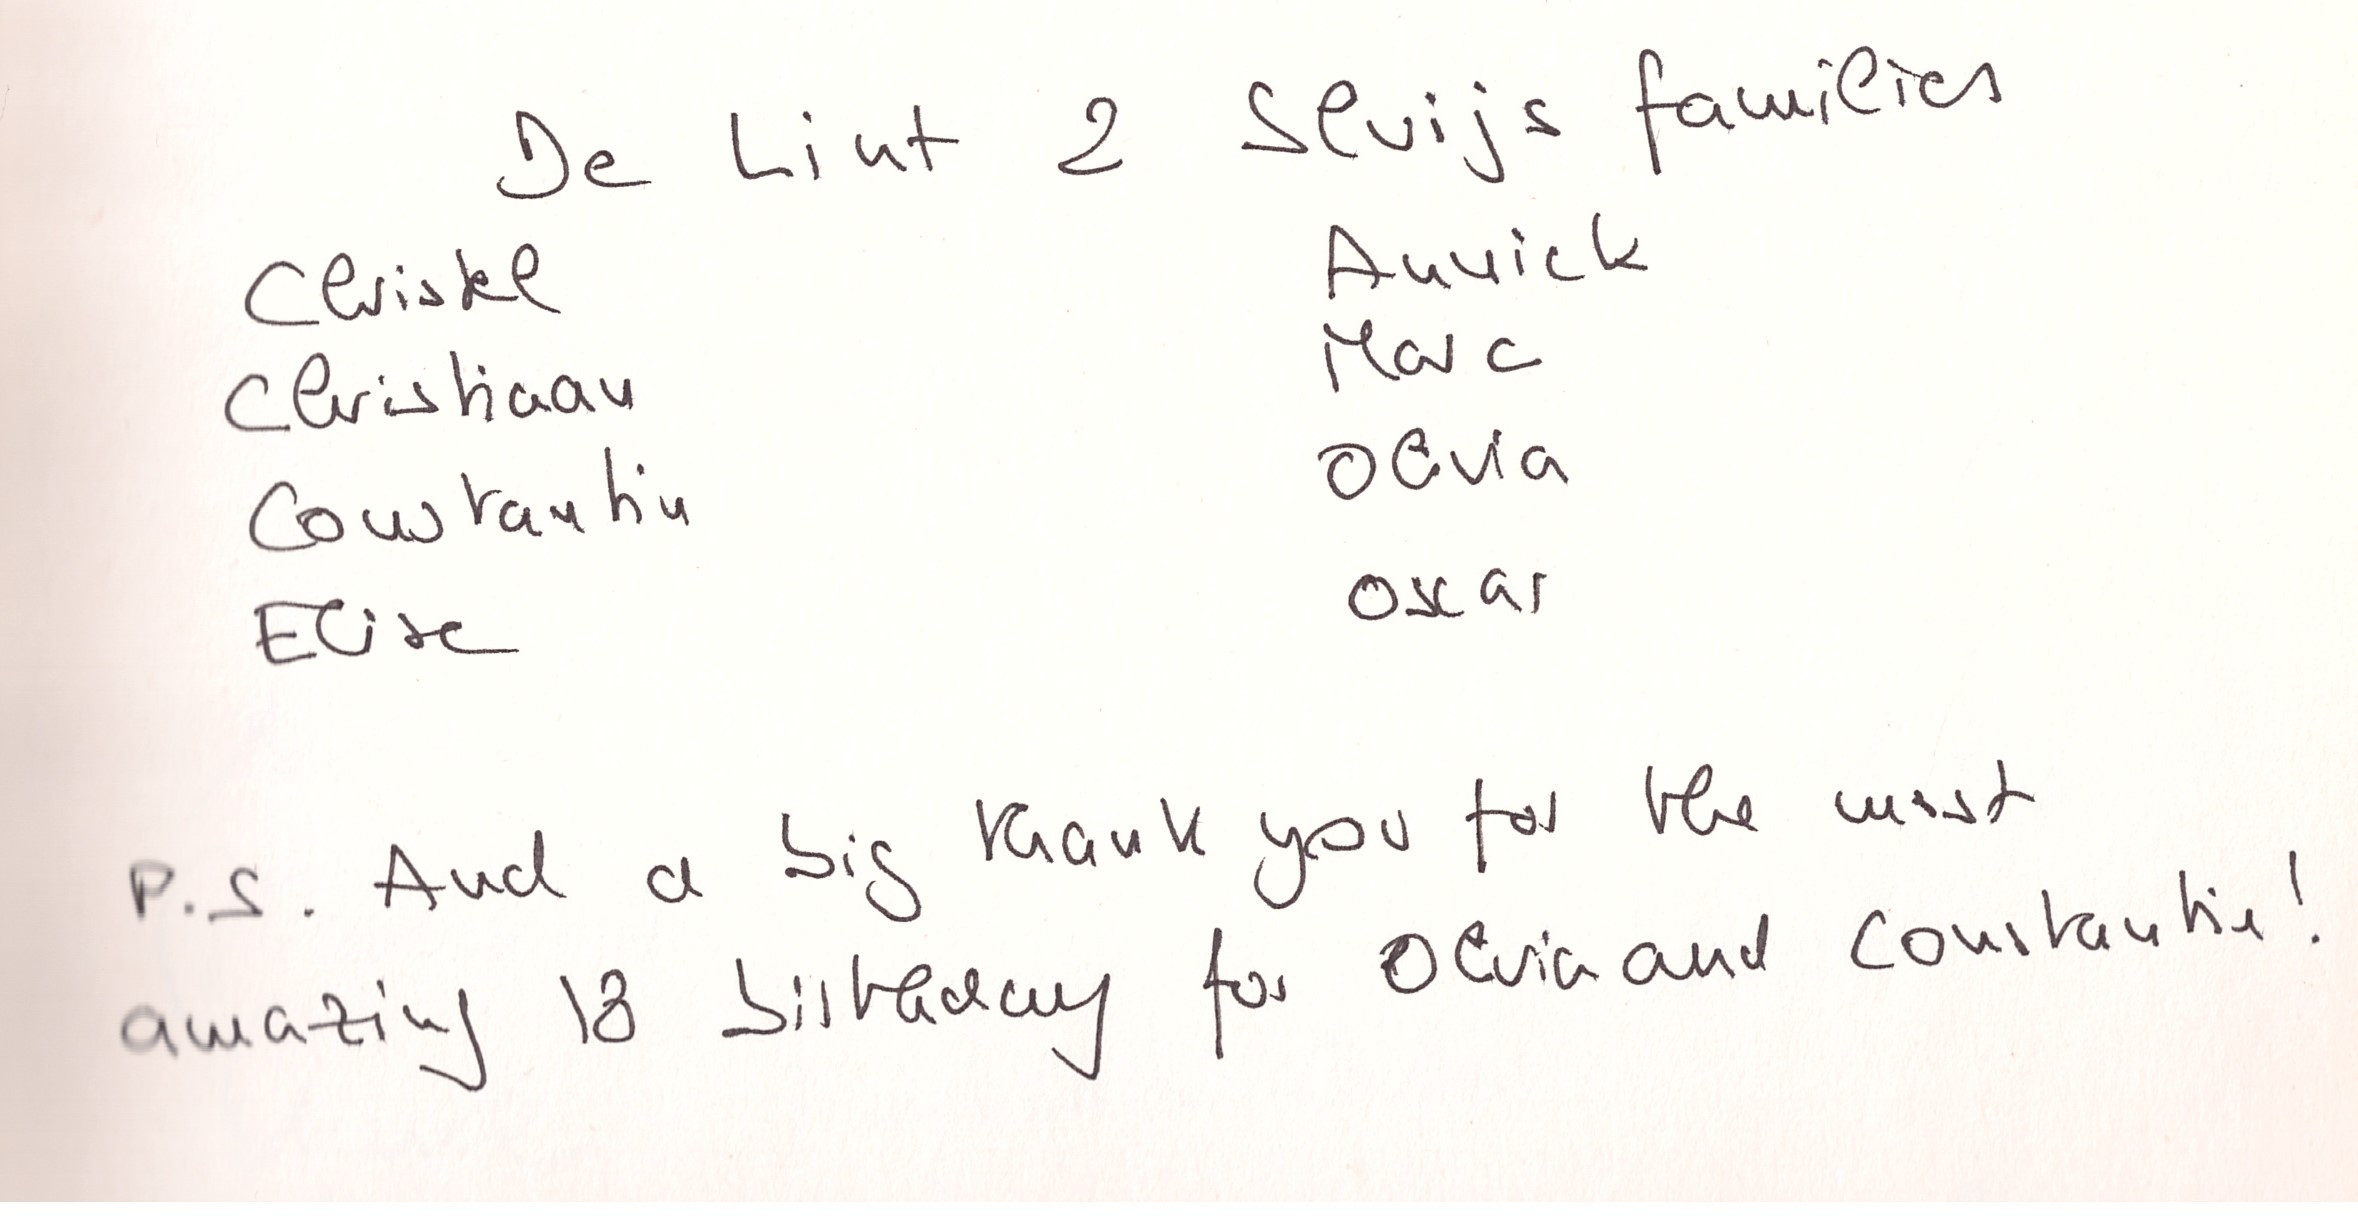 De Lint & Sluijs families
Christel Annick
Christiaan Marc
Constantin Olivia
Elise Oscar
P.S. And a big thank you for the most
amazing 18 birthday for Olivia and Constantin!